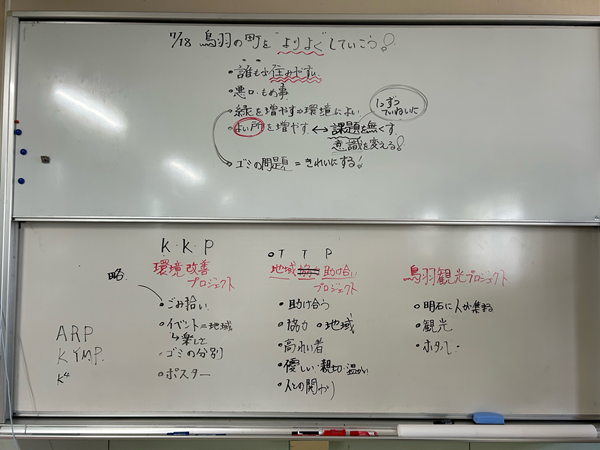 7/18 鳥羽の町を"よりよく"していこう!
・誰もが住みやすい
・悪口・もめ事
・緑を増やす⇒環境によい
1つずつ
ていねいに
・よい所を増やす ↔ 課題を無くす
意識を変える!
・ゴミの問題 = きれいにする!
K・K・P
環境改善
プロジェクト
略
・ごみ拾い
・イベント=地域
↳楽しく
・ゴミの分別
・ポスター
ARP
KYMP.
K4
T T P
地域 助け合い
プロジェクト
・助け合う
・協力 ・地域
・高れい者
・優しい・親切・温かい
・人との関わり
鳥羽観光プロジェクト
・明石に人が集まる
・観光
・ホタル